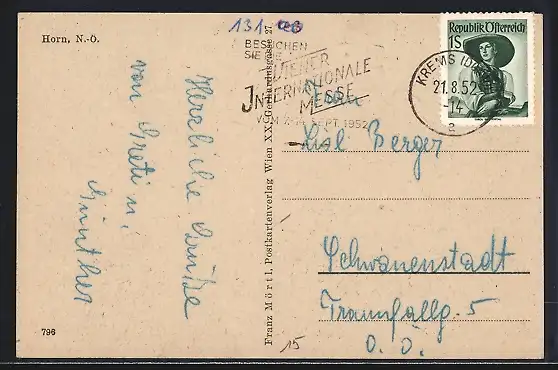 Horn, N.-Ö.
131.
BESUCHEN
SIE DIE
WIENER
INTERNATIONALE
MESSE
VOM 7.-14. SEPT. 1952
Republik Österreich
1S
KREMS (DONAU)
21.8.52
-14
a
Herzliche Grüße
von Greti u.
Günther
Franz Mörtl, Postkartenverlag Wien XX, Gerhardusgasse 27
Frau
Lisl Berger
Schwanenstadt
Traunfallg. 5
O. Ö.
796
15